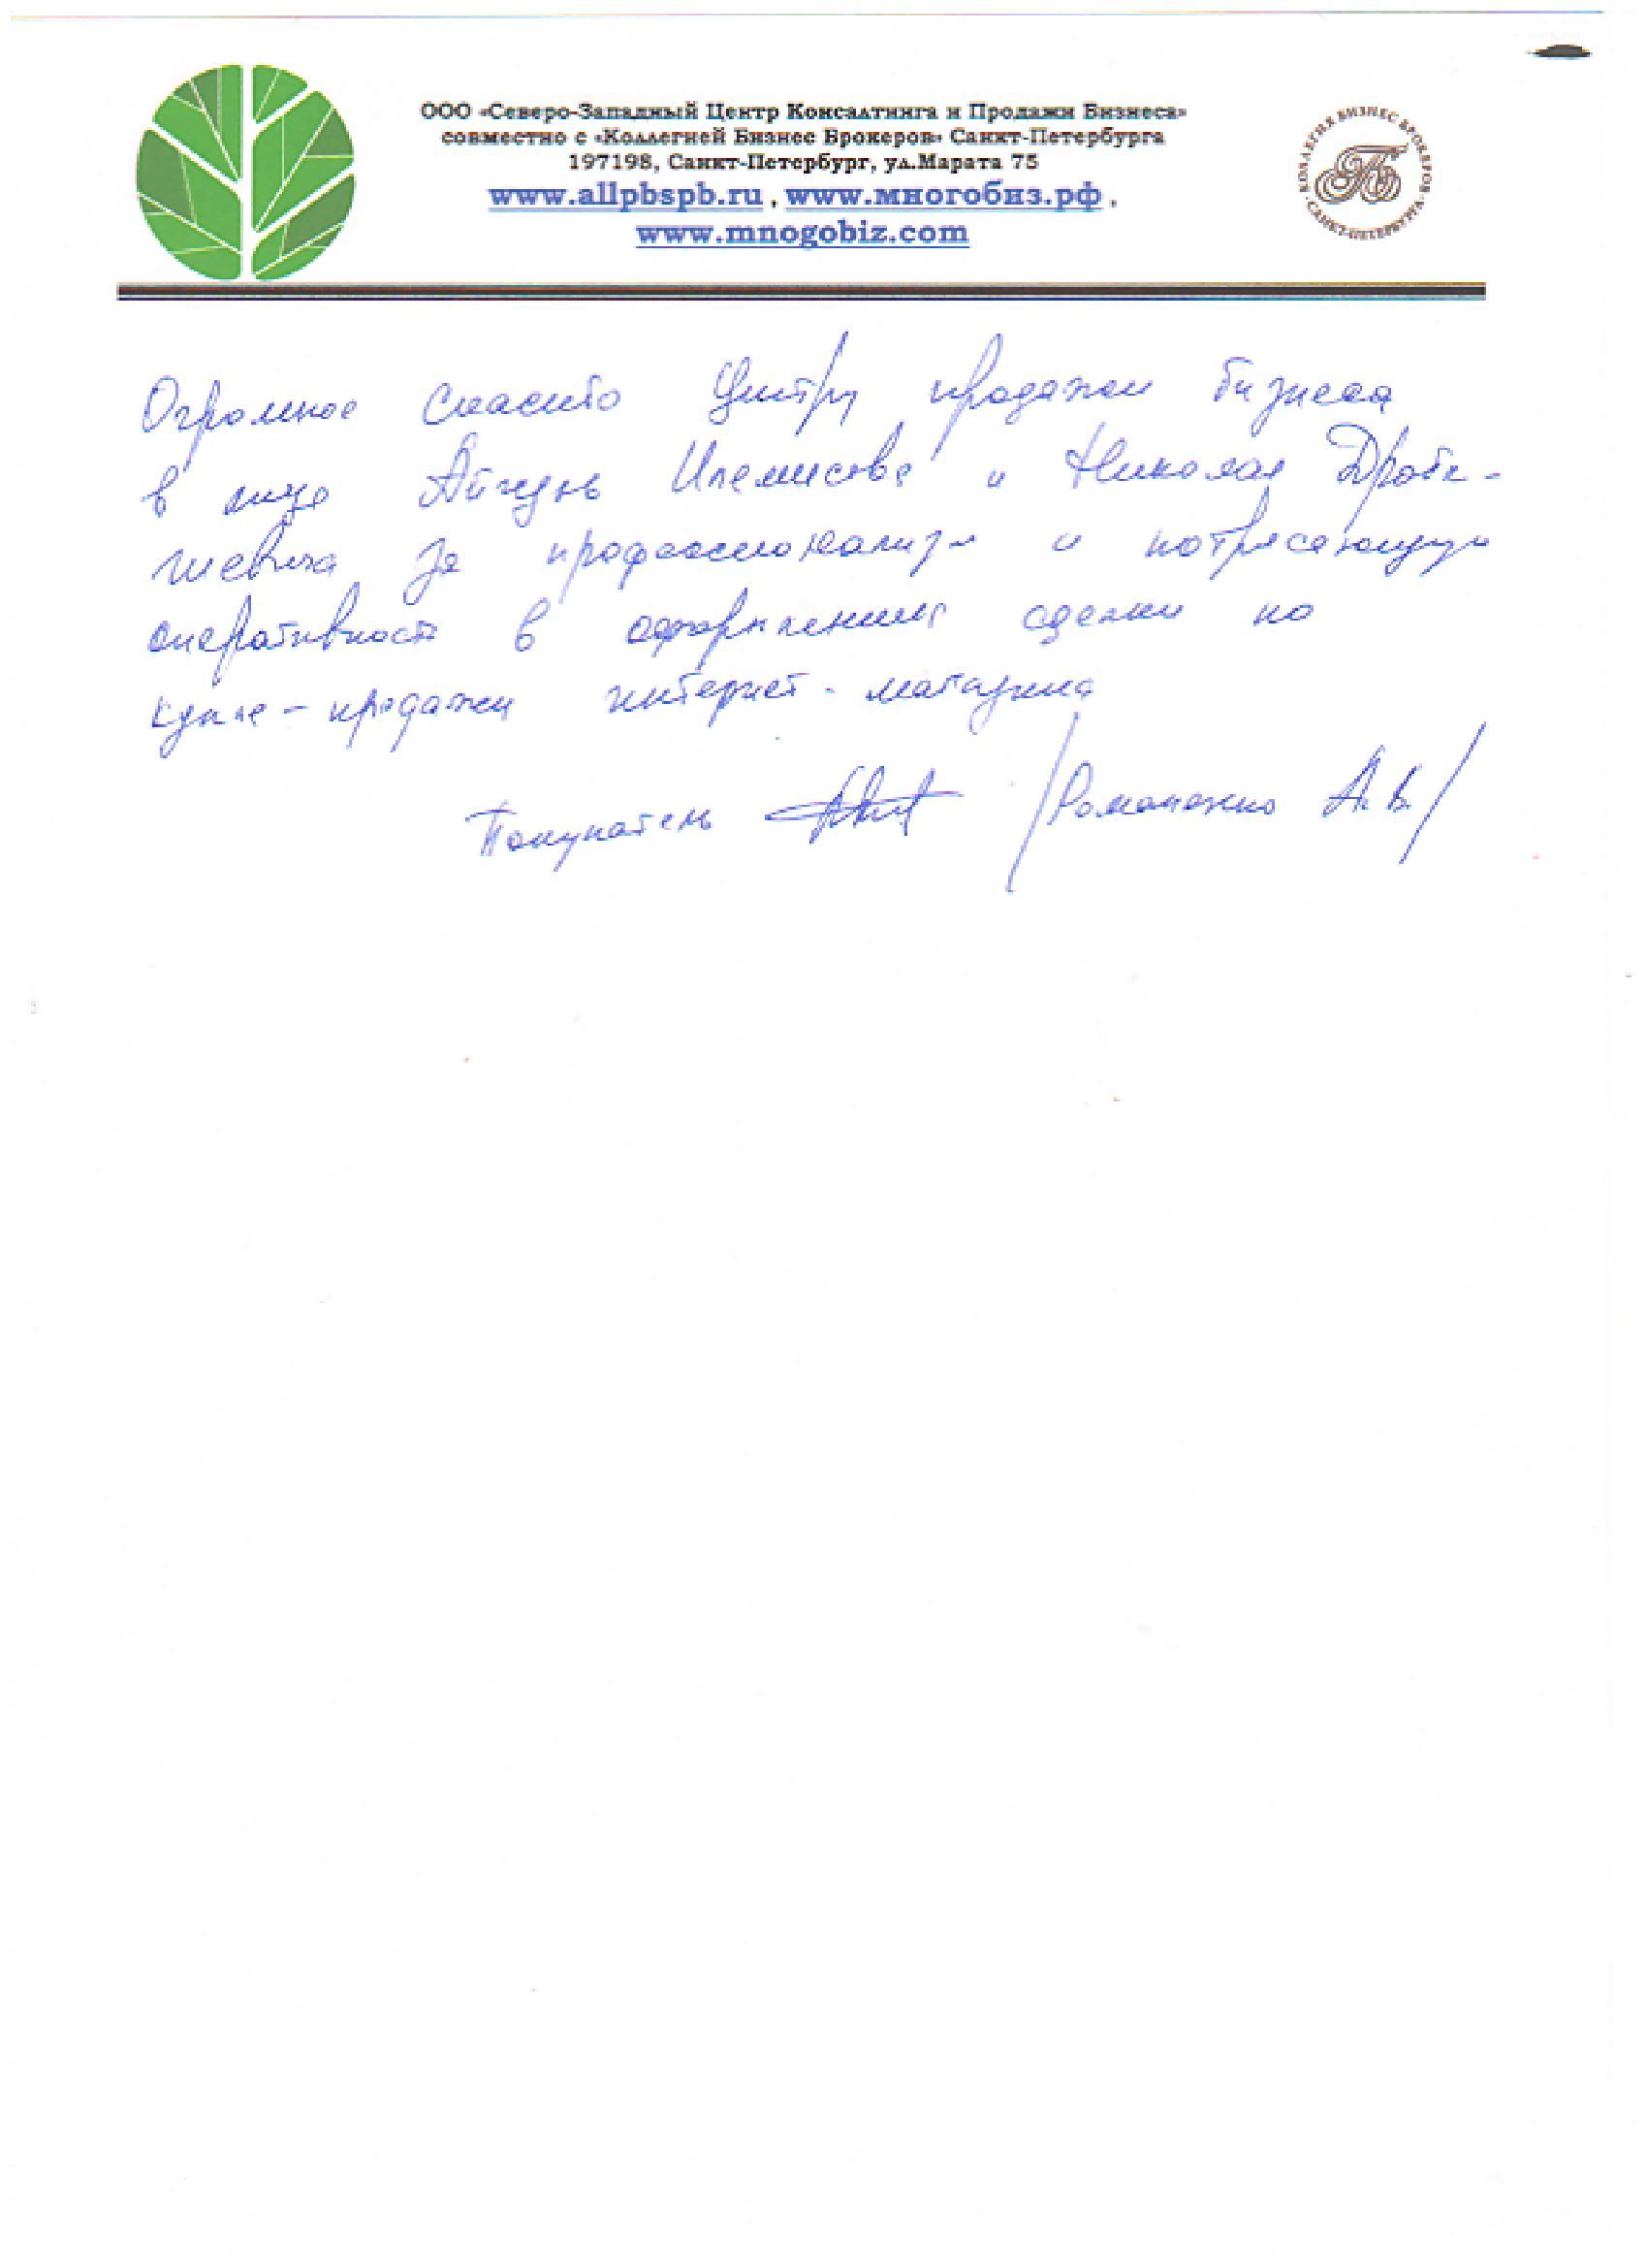 ООО «Северо-Западный Центр Консалтинга и Продажи Бизнеса»
совместно с «Коллегией Бизнес Брокеров» Санкт-Петербурга
197198, Санкт-Петербург, ул.Марата 75
www.allpbspb.ru , www.многобиз.рф ,
www.mnogobiz.com
КОЛЛЕГИЯ БИЗНЕС БРОКЕРОВ
САНКТ-ПЕТЕРБУРГА
Огромное спасибо Центру продажи бизнеса
в лице и Николая
за профессионализм и потрясающую
оперативность в оформлении сделки по
купле-продажи интернет-магазина
Покупатель /Романенко А.В./